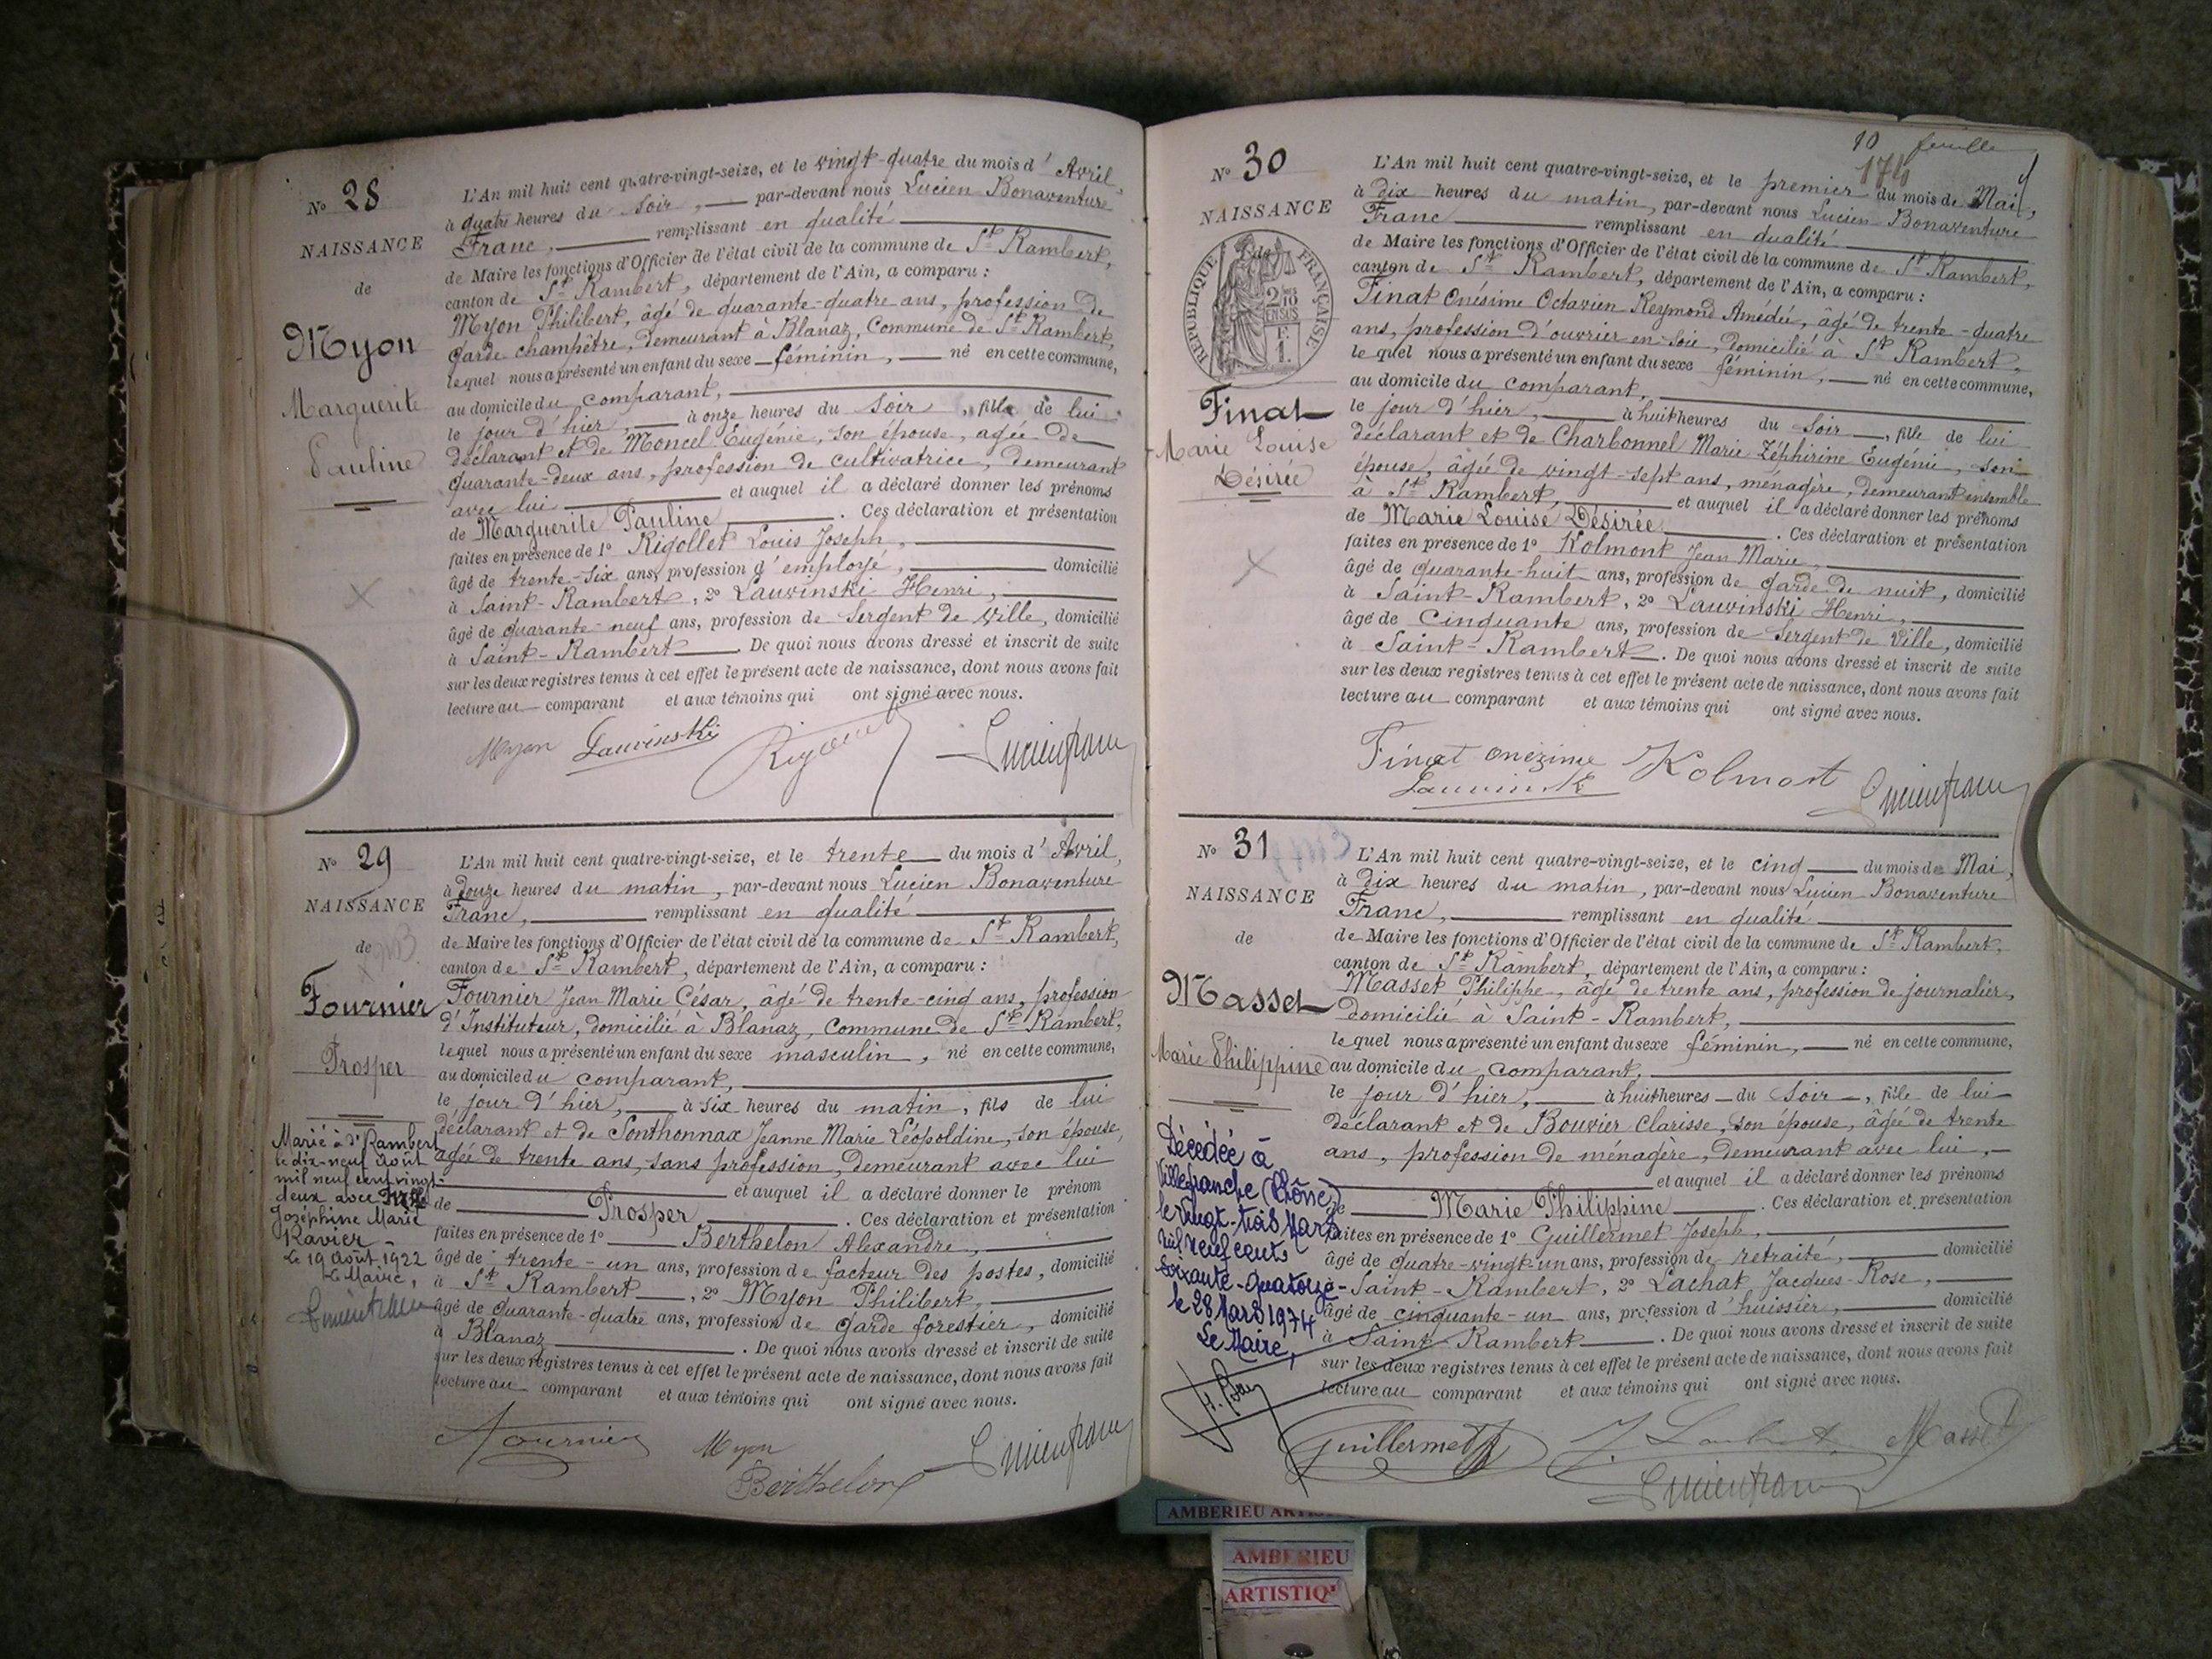 N° 28
NAISSANCE
de
Myon
Marguerite
Pauline
L'An mil huit cent quatre-vingt-seize, et le vingt-quatre du mois d'Avril,
à quatre heures du soir, par-devant nous Lucien Bonaventure
Franc, remplissant en qualité
de Maire les fonctions d'Officier de l'état civil de la commune de St Rambert,
canton de St Rambert, département de l'Ain, a comparu :
Myon Philibert, âgé de quarante-quatre ans, profession de
garde champêtre, demeurant à Blanaz, Commune de St Rambert,
lequel nous a présenté un enfant du sexe féminin, né en cette commune,
au domicile du comparant,
le jour d'hier, à onze heures du soir, fille de lui
déclarant et de Moncel Eugénie, son épouse, agée de
quarante-deux ans, profession de cultivatrice, demeurant
avec lui et auquel il a déclaré donner les prénoms
de Marguerite Pauline. Ces déclaration et présentation
faites en présence de 1° Rigollet Louis Joseph,
âgé de trente-six ans, profession d'employé, domicilié
à Saint-Rambert, 2° Lauvinski Henri,
âgé de quarante-neuf ans, profession de Sergent de Ville, domicilié
à Saint-Rambert. De quoi nous avons dressé et inscrit de suite
sur les deux registres tenus à cet effet le présent acte de naissance, dont nous avons fait
lecture au comparant et aux témoins qui ont signé avec nous.
Myon Lauvinski
N° 29
NAISSANCE
de
Fournier
Prosper
Marié à St Rambert
le dix-neuf Août
mil neuf cent vingt-
deux avec
Joséphine Marie
Ravier
Le 19 Août 1922
Le Maire,
L'An mil huit cent quatre-vingt-seize, et le trente du mois d'Avril,
à douze heures du matin, par-devant nous Lucien Bonaventure
Franc, remplissant en qualité
de Maire les fonctions d'Officier de l'état civil de la commune de St Rambert,
canton de St Rambert, département de l'Ain, a comparu :
Fournier Jean Marie César, âgé de trente-cinq ans, profession
d'Instituteur, domicilié à Blanaz, Commune de St Rambert,
lequel nous a présenté un enfant du sexe masculin, né en cette commune,
au domicile du comparant,
le jour d'hier, à six heures du matin, fils de lui
déclarant et de Sonthonnax Jeanne Marie Léopoldine, son épouse,
agée de trente ans, sans profession, demeurant avec lui
et auquel il a déclaré donner le prénom
de Prosper. Ces déclaration et présentation
faites en présence de 1° Berthelon Alexandre,
âgé de trente-un ans, profession de facteur des postes, domicilié
à St Rambert, 2° Myon Philibert,
âgé de quarante-quatre ans, profession de garde forestier, domicilié
à Blanaz. De quoi nous avons dressé et inscrit de suite
sur les deux registres tenus à cet effet le présent acte de naissance, dont nous avons fait
lecture au comparant et aux témoins qui ont signé avec nous.
Fournier Myon
Berthelon
10 feuille
174
N° 30
NAISSANCE
RÉPUBLIQUE FRANÇAISE
2/10 EN SUS
F.
1.
Finat
Marie Louise
Désirée
L'An mil huit cent quatre-vingt-seize, et le premier du mois de Mai,
à dix heures du matin, par-devant nous Lucien Bonaventure
Franc remplissant en qualité
de Maire les fonctions d'Officier de l'état civil de la commune de St Rambert,
canton de St Rambert, département de l'Ain, a comparu :
Finat Onésime Octavien Reymond Amédée, âgé de trente-quatre
ans, profession d'ouvrier en soie, domicilié à St Rambert,
lequel nous a présenté un enfant du sexe féminin, né en cette commune,
au domicile du comparant,
le jour d'hier, à huit heures du soir, fille de lui
déclarant et de Charbonnel Marie Zéphirine Eugénie, son
épouse, âgée de vingt-sept ans, ménagère, demeurant ensemble
à St Rambert, et auquel il a déclaré donner les prénoms
de Marie Louise Désirée. Ces déclaration et présentation
faites en présence de 1° Kolmont Jean Marie,
âgé de quarante-huit ans, profession de garde de nuit, domicilié
à Saint-Rambert, 2° Lauvinski Henri,
âgé de Cinquante ans, profession de Sergent de Ville, domicilié
à Saint-Rambert. De quoi nous avons dressé et inscrit de suite
sur les deux registres tenus à cet effet le présent acte de naissance, dont nous avons fait
lecture au comparant et aux témoins qui ont signé avec nous.
Finat onézime Kolmont
Lauvinski
N° 31
NAISSANCE
de
Masset
Marie Philippine
Décédée à
Villefranche (Rhône)
le vingt-trois Mars
mil neuf cent
soixante-quatorze
le 28 Mars 1974
Le Maire,
L'An mil huit cent quatre-vingt-seize, et le cinq du mois de Mai,
à dix heures du matin, par-devant nous Lucien Bonaventure
Franc, remplissant en qualité
de Maire les fonctions d'Officier de l'état civil de la commune de St Rambert,
canton de St Rambert, département de l'Ain, a comparu :
Masset Philippe, âgé de trente ans, profession de journalier,
domicilié à Saint-Rambert,
lequel nous a présenté un enfant du sexe féminin, né en cette commune,
au domicile du comparant,
le jour d'hier, à huit heures du soir, fille de lui
déclarant et de Bouvier Clarisse, son épouse, âgée de trente
ans, profession de ménagère, demeurant avec lui,
et auquel il a déclaré donner les prénoms
de Marie Philippine. Ces déclaration et présentation
faites en présence de 1° Guillermet Joseph,
âgé de quatre-vingt-un ans, profession de retraité, domicilié
à Saint-Rambert, 2° Lachat Jacques-Rose,
âgé de cinquante-un ans, profession d'huissier, domicilié
à Saint-Rambert. De quoi nous avons dressé et inscrit de suite
sur les deux registres tenus à cet effet le présent acte de naissance, dont nous avons fait
lecture au comparant et aux témoins qui ont signé avec nous.
Guillermet Masset
AMBERIEU
AMBERIEU
ARTISTIQ